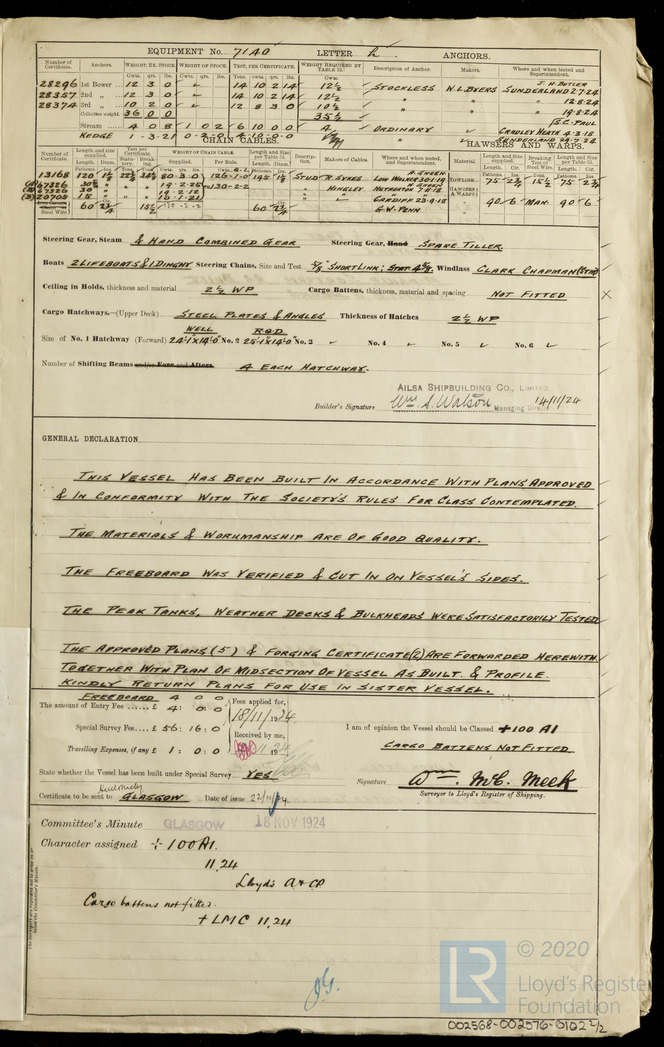 EQUIPMENT No. 7140 LETTER h. ANCHORS.
Number of Certificate. Anchors. WEIGHT, EX. STOCK WEIGHT OF STOCK. TEST, PER CERTIFICATE. WEIGHT REQUIRED BY TABLE 31. Description of Anchor. Makers. Where and when tested and Superintendent.
Cwts. qrs. lbs. Cwts. qrs. lbs. Tons. cwts. qrs. lbs. Cwts.
J. H. BUTLER
28296 1st Bower 12 3 0 14 10 2 14 12½ STOCKLESS W.L. BYERS SUNDERLAND 2.7.24
28357 2nd „ 12 3 0 14 10 2 14 12½ „ „ „ 12.8.24
28374 3rd „ 10 2 0 12 8 3 0 10½ „ „ „ 19.8.24
Collective weight 36 0 0 35½ J.S.C. PAUL
Stream 4 0 8 1 0 2 6 10 0 0 4 ORDINARY CRADLEY HEATH 4.3.18
KEDGE 1 3 21 SUNDERLAND
CHAIN CABLES. HAWSERS AND WARPS.
Number of Certificate. Length and size supplied. Test per Certificate. WEIGHT OF CHAIN CABLE. Length and size per Table 31. Makers of Cables. Where and when tested, and Superintendent. Material Length and size supplied. Breaking Test of Steel Wire. Length and Size per Table 31.
Length. Diam. Statutory. Breaking. Supplied. Per Rule. Length. Diam. Length. Cir. Length. Cir.
13168 120 80 3 0 195 STUD R. SYKES LOW WALKER 30.1.19 TOWLINE 75 2¾ 15½ 75 2¾
67326 19.2.26 130-2-2 „ HINGLEY NETHERTON HAWSERS & WARPS
67326 19.2.12
20705 15 CARDIFF 23.9.18 90 6 MAN. 90 6
60 2¾ 15½ 60 2¾ G.W. PENN
Steering Gear, Steam & HAND COMBINED GEAR Steering Gear, Hand SPARE TILLER
Boats 2 LIFEBOATS & 1 DINGHY Steering Chains, Size and Test ⅞ SHORT LINK: Windlass CLARK CHAPMAN (STM)
Ceiling in Holds, thickness and material 2½ WP Cargo Battens, thickness, material and spacing NOT FITTED
Cargo Hatchways.—(Upper Deck) STEEL PLATES & ANGLES Thickness of Hatches 2½ WP
WELL R.Q.D
Size of No. 1 Hatchway (Forward) 24'-1"X14'-0" No. 2 25'-1"X14'-0" No. 3 No. 4 No. 5 No. 6
Number of Shifting Beams and/or Fore and Afters. 4 EACH HATCHWAY.
AILSA SHIPBUILDING CO., LIMITED
Builder's Signature Wm. S. Watson Managing Director 14/11/24
GENERAL DECLARATION
THIS VESSEL HAS BEEN BUILT IN ACCORDANCE WITH PLANS APPROVED
& IN CONFORMITY WITH THE SOCIETY'S RULES FOR CLASS CONTEMPLATED.
THE MATERIALS & WORKMANSHIP ARE OF GOOD QUALITY.
THE FREEBOARD WAS VERIFIED & CUT IN ON VESSEL'S SIDES.
THE PEAK TANKS, WEATHER DECKS & BULKHEADS WERE SATISFACTORILY TESTED
THE APPROVED PLANS (5) & FORGING CERTIFICATE (2) ARE FORWARDED HEREWITH.
TOGETHER WITH PLAN OF MIDSECTION OF VESSEL AS BUILT. & PROFILE.
KINDLY RETURN PLANS FOR USE IN SISTER VESSEL.
FREEBOARD 4 0 0
The amount of Entry Fee ...... £ 4 : 0 : 0 Fees applied for, 18/11/1924
Special Survey Fee.... £ 56 : 16 : 0 Received by me, I am of opinion the Vessel should be Classed +100 A1
Travelling Expenses, if any £ 1 : 0 : 0 CARGO BATTENS NOT FITTED
State whether the Vessel has been built under Special Survey YES
Signature Wm. McC. Meek
Certificate to be sent to GLASGOW Date of issue 22/11/24 Surveyor to Lloyd's Register of Shipping.
Committee's Minute GLASGOW 18 NOV 1924
Character assigned +100A1
11.24
Lloyd's A & CP
Cargo battens not fitted.
+ LMC 11.24
© 2020
LR Lloyd's Register Foundation
002568-002576-0102 2/2